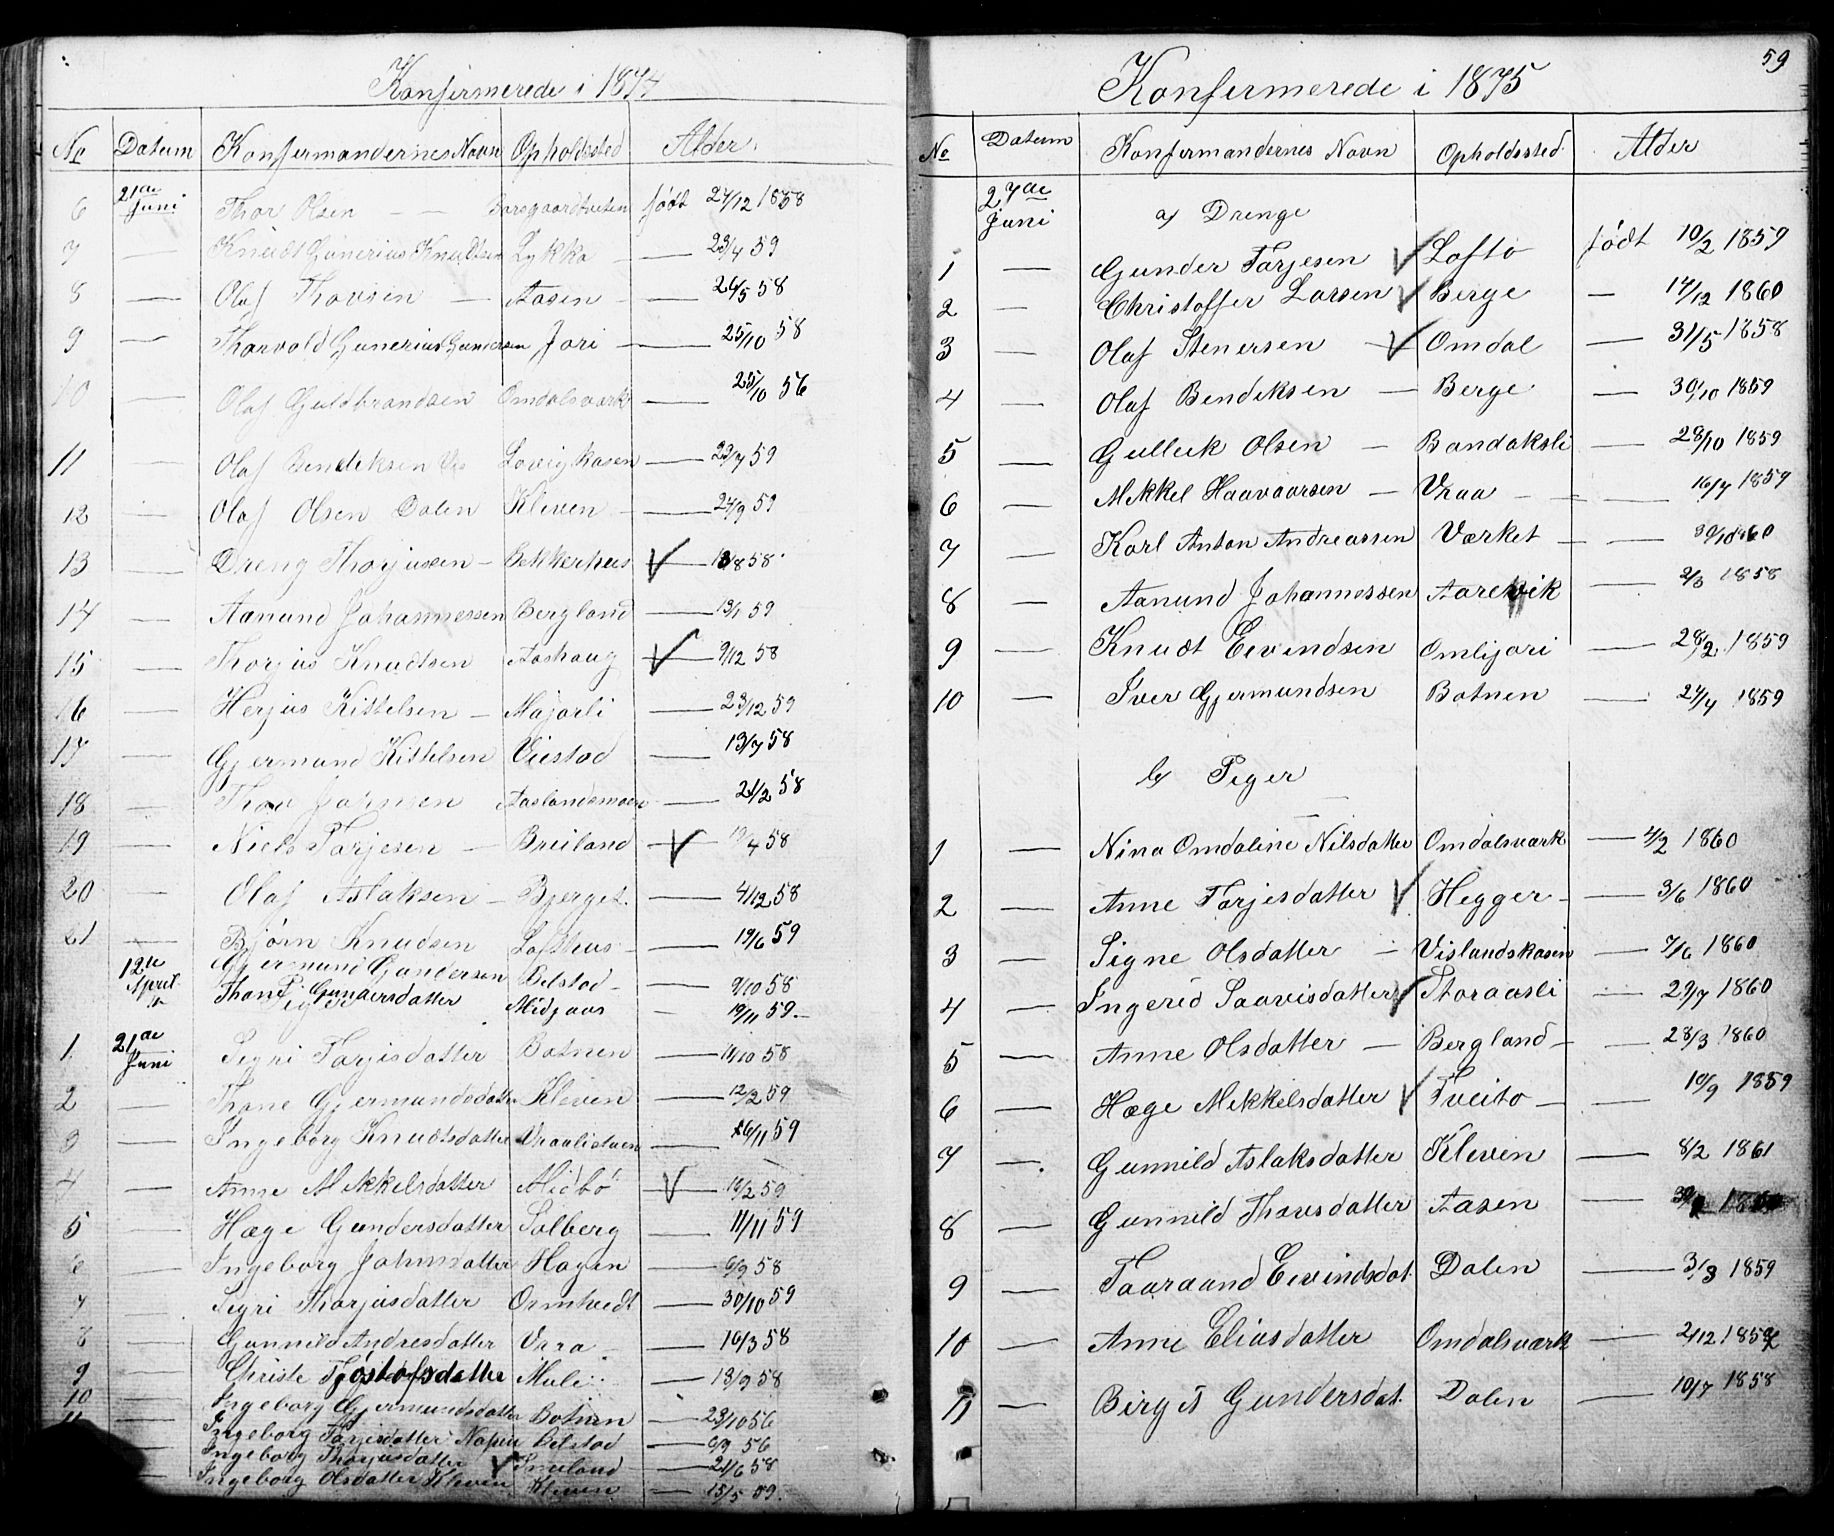 Konfirmerede i 1874
No Datum Konfirmandernes Navn Opholdssted Alder
6 21de Juni Thor Olsen — — født 27/12 1858
7 — Knudt Gunerius Knudtsen Lykka — 23/4 59
8 — Olaf Thovsen — Aasen — 26/5 58
9 — Thorvold Gunerius Gundersen Jori — 25/10 58
10 — Olaf Guldbrandsen Omdalsværk — 25/10 56
11 — Olaf Bendiksen Lovigkasen — 23/7 59
12 — Olaf Olsen Dalen Kleven — 27/9 59
13 — Dreng Thorjussen — Bekkerhus — 13/8 58
14 — Aanund Johannessen Bergland — 13/1 59
15 — Thorjus Knudtsen Aashaug — 9/12 58
16 — Herjus Kittelsen — Majorli — 23/12 59
17 — Gjermund Kittelsen Viestad — 13/7 58
18 — Thov Johnsen Aaslandsmoen — 21/2 58
19 — Niels Tarjesen — Breiland — 19/4 58
20 — Olaf Aslaksen — Bjerget — 4/12 58
21 — Bjørn Knudsen Lofthus — 19/6 59
12te April Gjermund Gundersen Belstad — 9/10 58
Thone Gundersdatter Midgaas — 19/11 59
Piger
1 21de Juni Sigri Tarjisdatter Botnen — 11/10 58
2 — Thone Gjermundsdatter Kleven — 12/2 59
3 — Ingeborg Knudtsdatter Vraalistaen — 26/11 59
4 — Anne Mikkelsdatter Midbö — 10/2 59
5 — Hæge Gundersdatter Solberg — 11/11 59
6 — Ingeborg Johnsdatter Hagen — 6/9 58
7 — Sigri Thorjusdatter Ormtvedt — 30/10 59
8 — Gunnild Andresdatter Vraa — 16/3 58
9 — Christe Tjöstofsdatter Muli — 13/9 58
10 — Ingeborg Gjermundsdatter Botnen — 23/10 56
11 Ingeborg Tarjisdatter Belstad — 6/9 56
Ingeborg Thorjusdatter — 21/6 58
Ingeborg Olsdatter Kleven Kleven — 15/5 59
59
Konfirmerede i 1875
No Datum Konfirmandernes Navn Opholdssted Alder
27de Juni a) Drenge
1 — Gunder Tarjesen Lofto født 10/2 1859
2 — Christoffer Larsen Berge — 17/12 1860
3 — Olaf Stenersen — Omdal — 31/5 1858
4 — Olaf Bendiksen — Berge — 30/10 1859
5 — Gulleik Olsen — Bandaksli — 28/10 1859
6 — Mikkel Haavaarsen — Vraa — — 16/7 1859
7 — Karl Anton Andreassen Værket — — 30/10 60
8 — Aanund Johannessen Aarevik — 2/3 1858
9 — Knudt Eivindsen Omlijori — 28/2 1859
10 — Iver Gjermundsen Botnen — 27/4 1859
b) Piger
1 — Nina Omdaline Nilsdatter Omdalsværk — 4/2 1860
2 — Anne Tarjesdatter Hegger — 3/6 1860
3 — Signe Olsdatter — Vislandskasin — 7/6 1860
4 — Ingerid Saavisdatter Storaasli — 29/7 1860
5 — Anne Olsdatter — Bergland — 28/3 1860
6 — Hæge Mikkelsdatter Tveito — 10/9 1859
7 — Gunnild Aslaksdatter Kleven — 8/2 1861
8 — Gunnild Thovsdatter Aasen —
9 — Taaraand Eivindsdat. Dalen — 3/3 1859
10 — Anne Eliasdatter Omdalsværk — 2/12 1859
11 — Birgit Gundersdat. Dalen — 10/7 1858